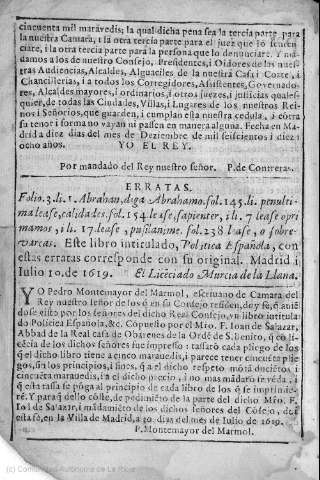 cincuenta mil maravedis; la qual dicha pena sea la tercia parte para
la nuestra Camara, i la otra tercia parte para el juez que lo senten-
ciare, i la otra tercia parte para la persona que lo denunciare. Y mã
damos a los de nuestro Consejo, Presidentes, i Oidores de las nues-
tras Audiencias, Alcaldes, Alguaciles de la nuestra Casa i Corte, i
Chancillerias, i a todos los Corregidores, Asistentes, Governado-
res, Alcaldes mayores, i ordinarios, i otros juezes, i justicias quales-
quier, de todas las Ciudades, Villas, i Lugares de los nuestros Rei-
nos i Señorios, que guarden, i cumplan esta nuestra cedula, i cõtra
su tenor i forma no vayan ni passen en manera alguna. Fecha en Ma-
drid a diez dias del mes de Deziembre de mil seiscientos i diez i
ocho años. YO EL REY.
Por mandado del Rey nuestro señor. P. de Contreras.
ERRATAS.
Folio.3.li.1. Abrahan, diga Abrahamo. fol.145.li. penulti-
ma lease, calidades. fol.154 lease, sapienter, i li. 7 lease opri
mamos, i li. 17. lease, pusilanime. fol. 238 lease, o sobre-
varcas. Este libro intitulado, Politica Española, con
estas erratas corresponde con su original. Madrid i
Iulio 10. de 1619. El Licẽciado Murcia de la Llana.
YO Pedro Montemayor del Marmol, escrivano de Camara del
Rey nuestro señor de los q̃ en su Consejo residen, doy fé, q̃ aviẽ
dose visto por los señores del dicho Real Consejo, vn libro intitula
do Politica Española, &c. Cõpuesto por el Mro. F. Ioan de Salazar,
Abbad de la Real casa de Obarenes de la Ordẽ de S. Benito, q̃ cõ li
cẽcia de los dichos señores fue impresso: tassarõ cada pliego de los
q̃ del dicho libro tiene a cinco maravedis, i parece tener cincuẽta plie
gos, sin los principios, i fines, q̃ a el dicho respeto mõta duciẽtos i
cincuẽta maravedis, i a el dicho precio, i no mas mãdarõ se vẽda, i
q̃ esta tassa se põga al principio de cada libro de los q̃ se imprimie-
rẽ. Y para q̃ dello cõste, de pedimiẽto de la parte del dicho Mro. F.
Iol de Salazar, i mãdamiẽto de los dichos señores del Cõsejo, di
esta fé, en la Villa de Madrid, a 30. dias del mes de Iulio de 1619.
P. Montemayor del Marmol.
(c) Comunidad Autónoma de La Rioja